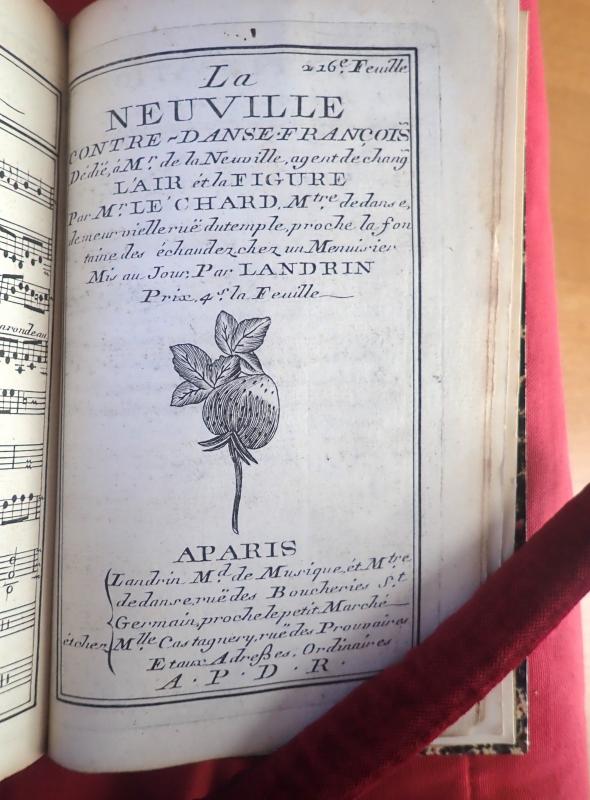 La
216.e Feuille
NEUVILLE
CONTRE-DANSE FRANÇOIS
Dédië, à Mr. de la Neuville, agent déchang
L'AIR ét la FIGURE
Par Mr. LE CHARD, Mtre de danse,
demeur vielle ruë du temple, proche la fon
taine des échaudez chez un Menuisier
Mis au Jour, Par LANDRIN
Prix, 4s. la Feuille
A PARIS
Landrin Md. de Musique, ét Mtre
de danse, ruë des Boucheries St.
Germain, proche le petit Marché
ét chez Mlle Castagnery, ruë des Prouvaires
Et aux Adreßes. Ordinaires
A . P . D . R .
a rondeau